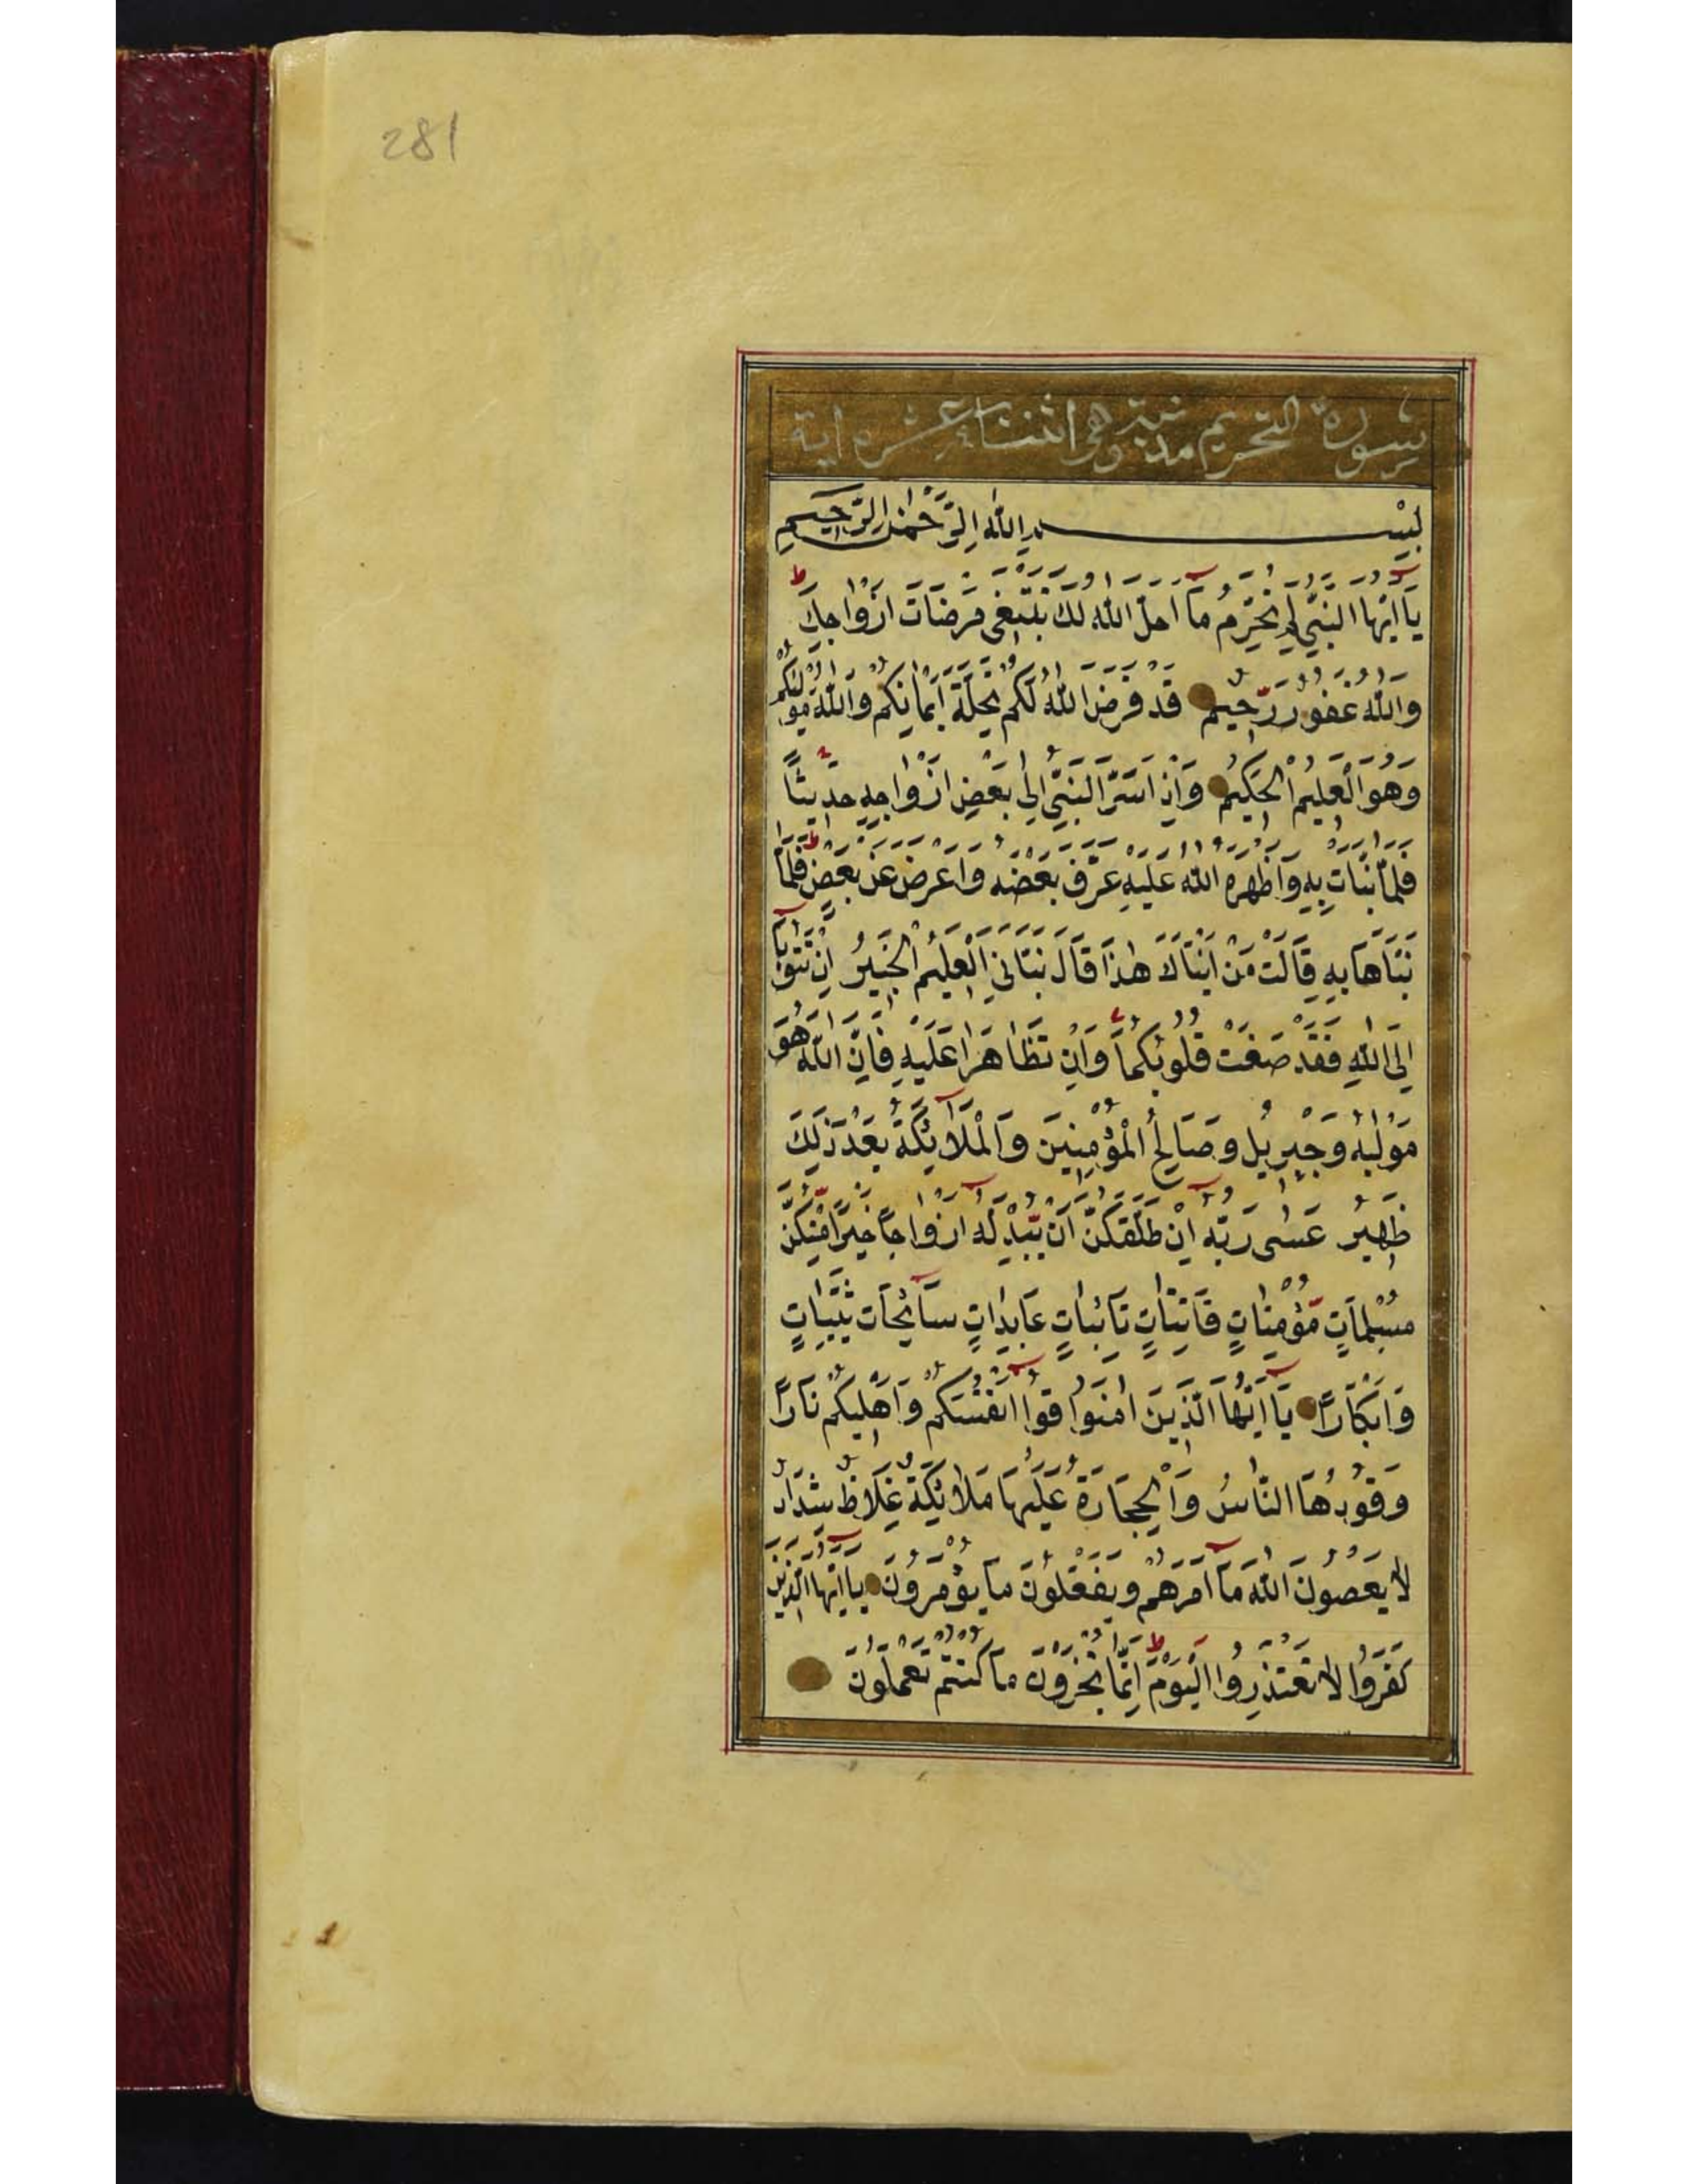 281
سورة التحريم مدنية وهي اثنتا عشره اية
بِسْمِ اللهِ الرَّحْمٰنِ الرَّحِيمِ
يَآ اَيُّهَا النَّبِيُّ لِمَ تُحَرِّمُ مَآ اَحَلَّ اللهُ لَكَ تَبْتَغِي مَرْضَاتَ اَزْوَاجِكَ ط
وَاللهُ غَفُورٌ رَّحِيمٌ قَدْ فَرَضَ اللهُ لَكُمْ تَحِلَّةَ اَيْمَانِكُمْ وَاللهُ مَوْلٰيكُمْ
وَهُوَ الْعَلِيمُ الْحَكِيمُ وَاِذْ اَسَرَّ النَّبِيُّ اِلٰى بَعْضِ اَزْوَاجِهِ حَدِيثًا
فَلَمَّا نَبَّاَتْ بِهِ وَاَظْهَرَهُ اللهُ عَلَيْهِ عَرَّفَ بَعْضَهُ وَاَعْرَضَ عَنْ بَعْضٍ ط فَلَمَّا
نَبَّاَهَا بِهِ قَالَتْ مَنْ اَنْبَاَكَ هٰذَا قَالَ نَبَّاَنِيَ الْعَلِيمُ الْخَبِيرُ اِنْ تَتُوبَآ
اِلَى اللهِ فَقَدْ صَغَتْ قُلُوبُكُمَا وَاِنْ تَظَاهَرَا عَلَيْهِ فَاِنَّ اللهَ هُوَ
مَوْلٰيهُ وَجِبْرِيلُ وَصَالِحُ الْمُؤْمِنِينَ وَالْمَلَآئِكَةُ بَعْدَ ذٰلِكَ
ظَهِيرٌ عَسٰى رَبُّهُ اِنْ طَلَّقَكُنَّ اَنْ يُّبْدِلَهُ اَزْوَاجًا خَيْرًا مِّنْكُنَّ
مُسْلِمَاتٍ مُّؤْمِنَاتٍ قَانِتَاتٍ تَآئِبَاتٍ عَابِدَاتٍ سَآئِحَاتٍ ثَيِّبَاتٍ
وَاَبْكَارًا يَآ اَيُّهَا الَّذِينَ اٰمَنُوا قُوآ اَنْفُسَكُمْ وَاَهْلِيكُمْ نَارًا
وَقُودُهَا النَّاسُ وَالْحِجَارَةُ عَلَيْهَا مَلَائِكَةٌ غِلَاظٌ شِدَادٌ
لَا يَعْصُونَ اللهَ مَآ اَمَرَهُمْ وَيَفْعَلُونَ مَا يُؤْمَرُونَ يَآ اَيُّهَا الَّذِينَ
كَفَرُوا لَا تَعْتَذِرُوا الْيَوْمَ ط اِنَّمَا تُجْزَوْنَ مَا كُنْتُمْ تَعْمَلُونَ